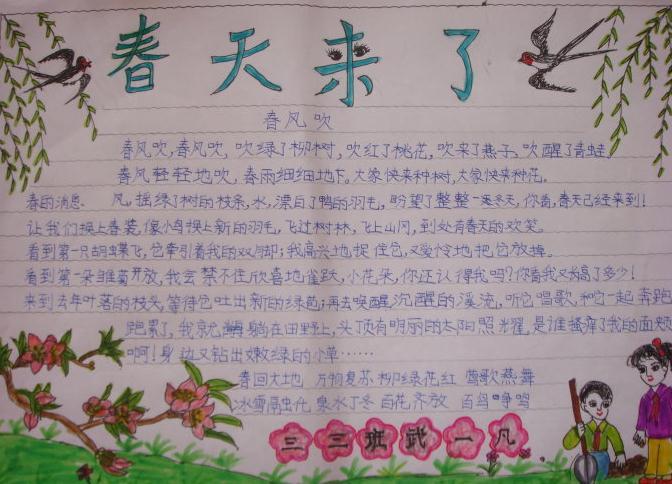 春天来了
春风吹
春风吹,春风吹,吹绿了柳树,吹红了桃花,吹来了燕子,吹醒了青蛙。
春风轻轻地吹,春雨细细地下。大家快来种树,大家快来种花。
春的消息、风,摇绿了树的枝条,水,漂白了鸭的羽毛,盼望了整整一英冬天,你看,春天已经来到!
让我们换上春装,像小鸟换上新的羽毛,飞过树林,飞上山冈,到处有春天的欢笑。
看到第一只胡蝶飞,它牵引着我的双脚;我高兴地捉住它,又爱怜地把它放掉。
看到第一朵雏菊开放,我会禁不住欣喜地雀跃,小花朵,你还认得我吗?你看我又长高了多少!
来到去年叶落的枝头,等待它吐出新的绿芭;再去唤醒沉醒的溪流,听它唱歌,和它一起奔跑
跑累了,我就躺在田野上,头顶有明丽的太阳照耀。是谁搔痒了我的面颊
啊!身边又钻出嫩绿的小草……
春回大地 万物复苏 柳绿花红 莺歌燕舞
冰雪融化 泉水丁冬 百花齐放 百鸟争鸣
三三班武一凡